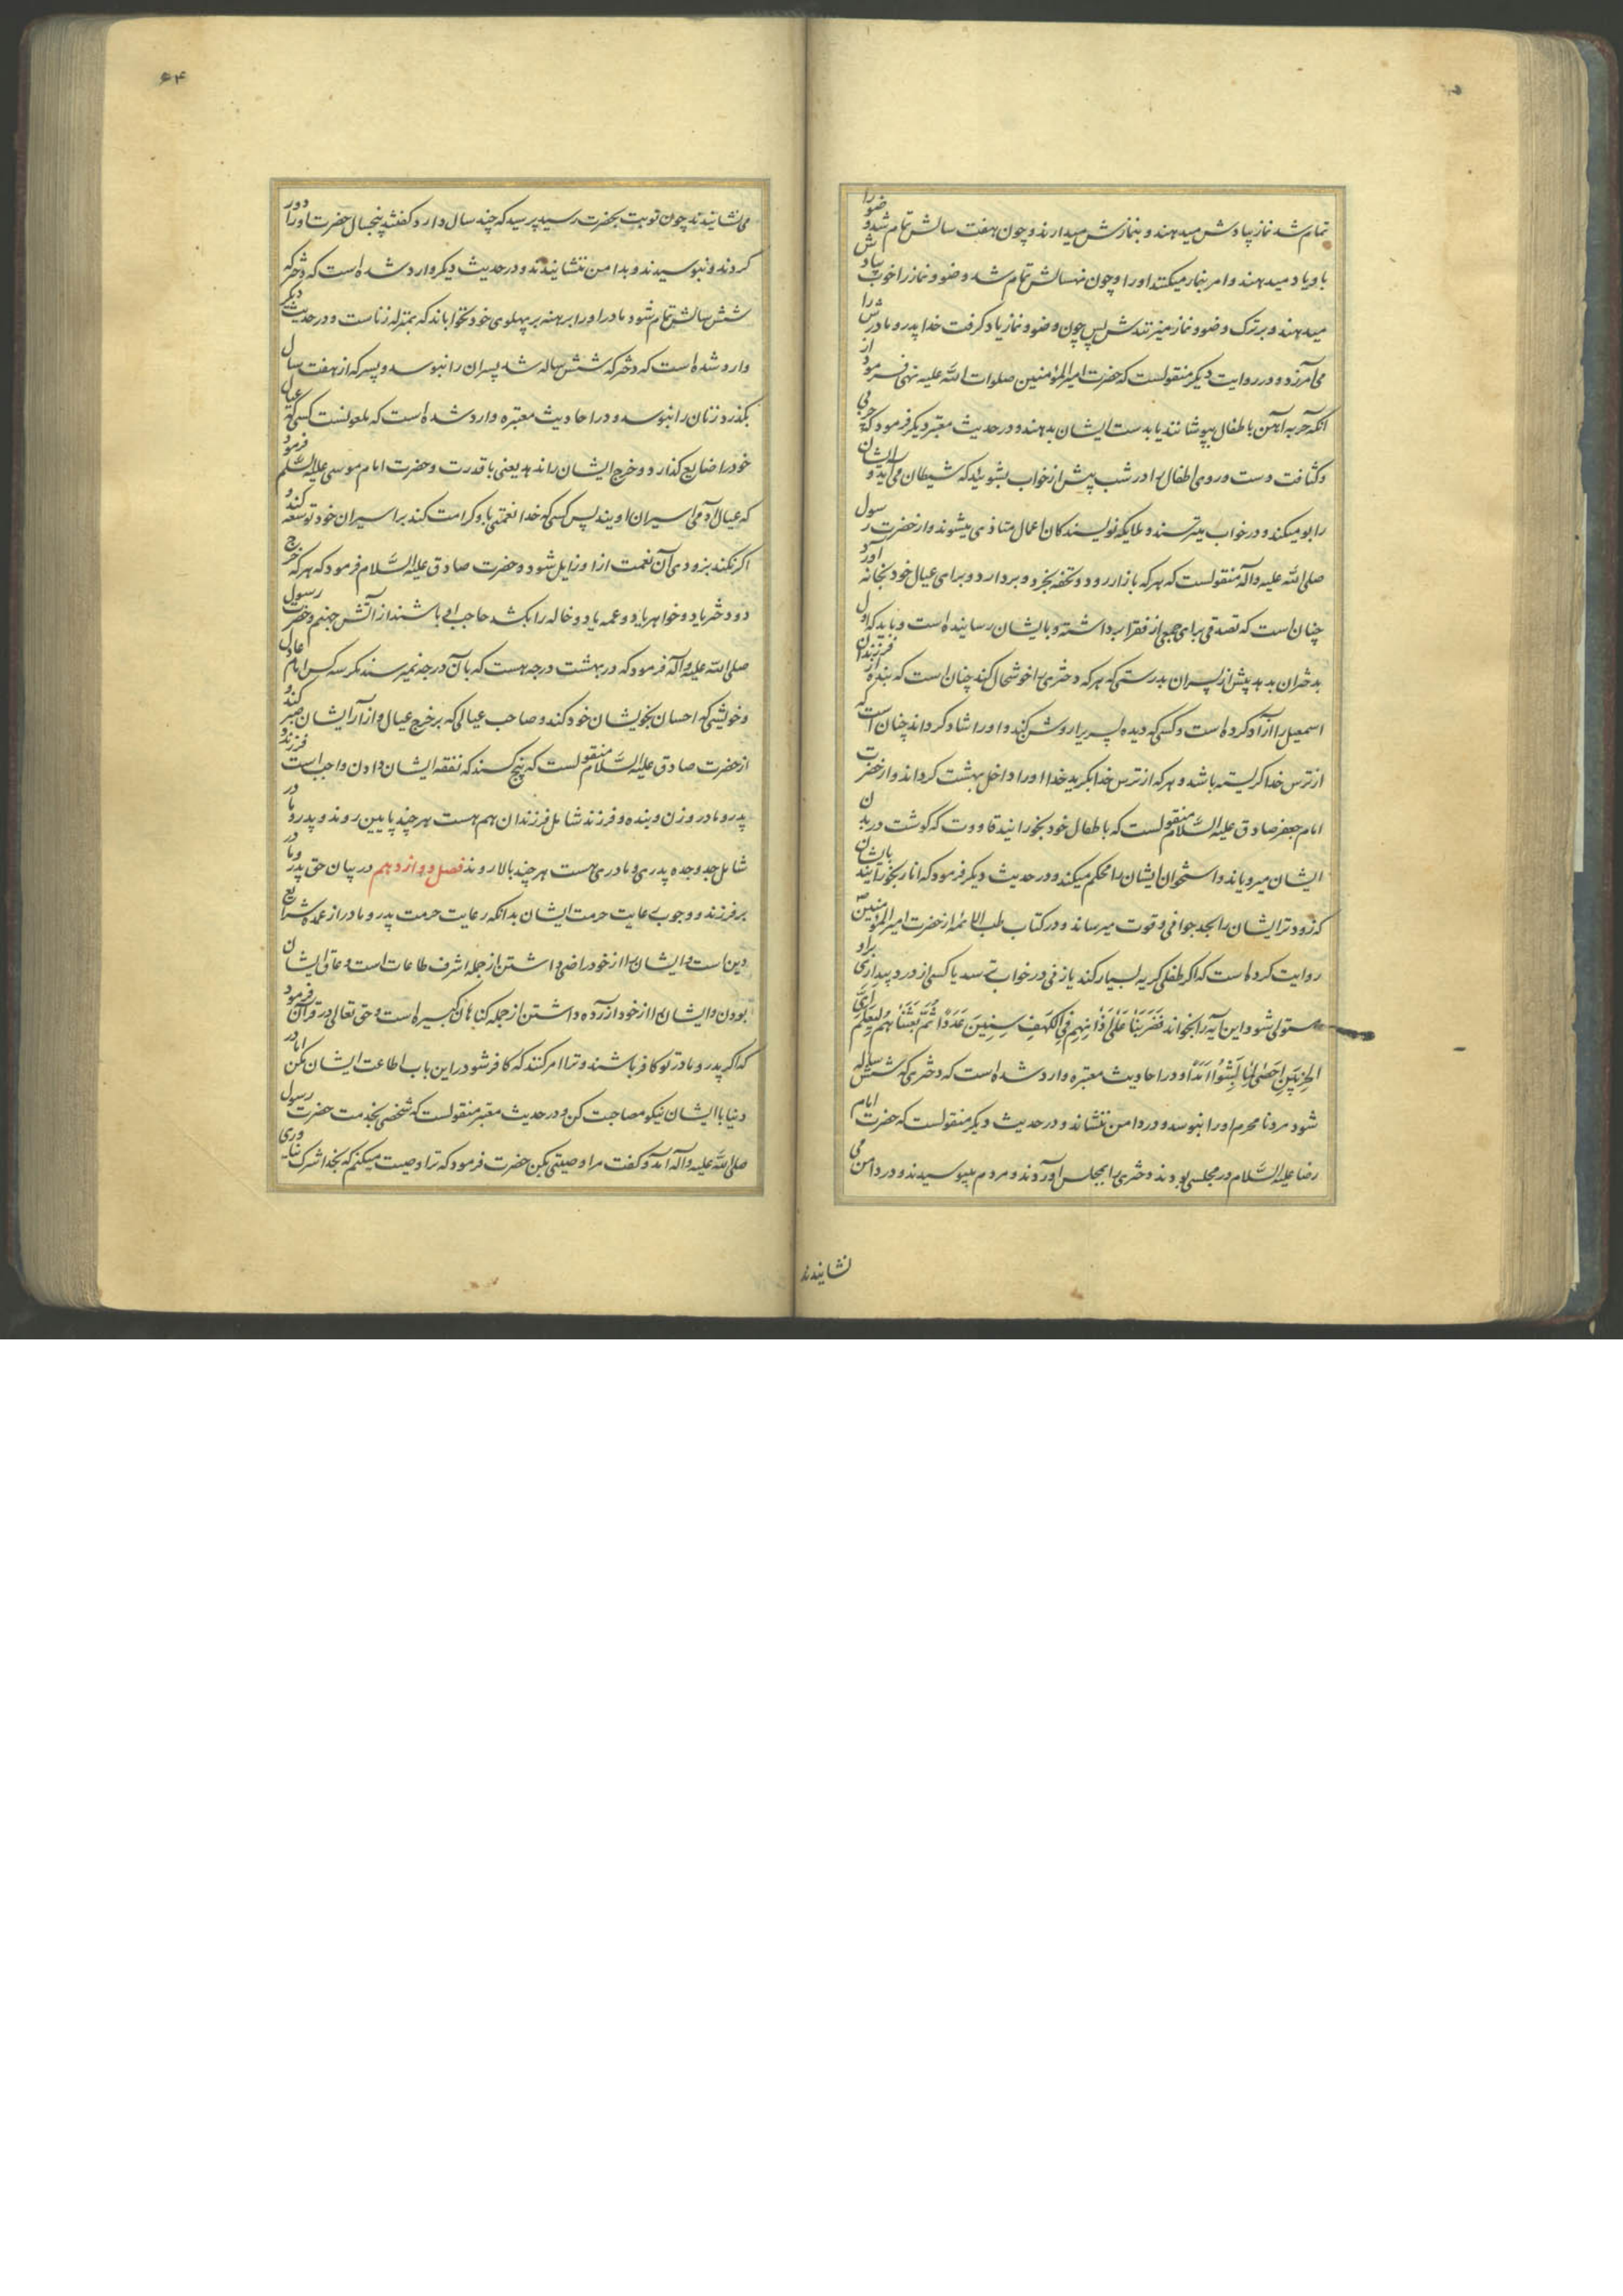 تمام شد نماز بیادش میدهند و بنمازش میدارند و چون هفت سالش تمام شد وضو را
باو یاد میدهند و امر بنماز میکنند او را و چون نه سالش تمام شد وضو و نماز را خوب بیادش
میدهند و بر ترک وضو و نماز میزنندش پس چون وضو و نماز یاد گرفت خدا پدر و مادرش را
می آمرزد و در روایت دیگر منقولست که حضرت امیرالمؤمنین صلوات الله علیه نهی فرمود از
آنکه حربه آهن باطفال بپوشانند یا بدست ایشان بدهند و در حدیث معتبر دیگر فرمود که چربی
و کثافت دست و روی اطفال را در شب پیش از خواب بشوئید که شیطان می آید و ایشان
را بو میکند و در خواب میترسند و ملایکه نویسندکان اعمال متاذی میشوند و از حضرت رسول
صلی الله علیه و آله منقولست که هر که ببازار رود و تحفه بخرد و بردارد و برای عیال خود بخانه آورد
چنان است که تصدقی برای جمعی از فقرا برداشته و بایشان رسانیده است و باید که اول
بدختران بدهد پیش از پسران بدرستی که هر که دختری را خوشحال کند چنان است که بنده از فرزندان
اسمعیل را آزاد کرده است و کسی که دیده پسری را روشن کند و او را شاد کرداند چنان است که
از ترس خدا کریسته باشد و هر که از ترس خدا بکرید خدا او را داخل بهشت کرداند و از حضرت
امام جعفر صادق علیه السلام منقولست که باطفال خود بخورانید قاووت که گوشت در بدن
ایشان میرویاند و استخوان ایشان را محکم میکند و در حدیث دیگر فرمود که انار بخورانید بایشان
که زودتر ایشان را بحد جوانی و قوت میرساند و در کتاب طب الائمه از حضرت امیرالمؤمنین
روایت کرده است که اگر طفلی کریه بسیار کند یا زنی در خواب ترسد یا کسی از درد بیداری براو
مستولی شود این آیه را بخواند فَضَرَبْنَا عَلَى آذَانِهِمْ فِي الْكَهْفِ سِنِينَ عَدَدًا ثُمَّ بَعَثْنَاهُمْ لِنَعْلَمَ أَيُّ
الْحِزْبَيْنِ أَحْصَى لِمَا لَبِثُوا أَمَدًا و در احادیث معتبره وارد شده است که دختری که شش ساله
شود مرد نامحرم او را نبوسد و در دامن ننشاند و در حدیث دیگر منقولست که حضرت امام
رضا علیه السلام در مجلسی بودند دختری را بمجلس آوردند و مردم میبوسیدند و در دامن می
نشانیدند
۶۴
می نشانیدند چون نوبت بحضرت رسید پرسید که چند سال دارد گفتند پنجسال حضرت او را دور
کردند و نبوسیدند و بدامن ننشانیدند و در حدیث دیگر وارد شده است که دختر که
شش سالش تمام شود مادر او را برهنه بر پهلوی خود نخواباند که بمنزله زناست و در حدیث دیگر
وارد شده است که دختر که شش ساله شد پسران را نبوسد و پسر که از هفت سال
بگذرد زنان را نبوسد و در احادیث معتبره وارد شده است که ملعونست کسی که عیال
خود را ضایع گذارد و خرج ایشان را ندهد یعنی با قدرت و حضرت امام موسی علیه السلم فرمود
که عیال آدمی اسیران اویند پس کسی که خدا نعمتی باو کرامت کند بر اسیران خود توسعه کند و
اگر نکند بزودی آن نعمت از او زایل شود و حضرت صادق علیه السلام فرمود که هر که خرج
دو دختر یا دو خواهر یا دو عمه یا دو خاله را بکشد حاجب او باشند از آتش جهنم و حضرت رسول
صلی الله علیه و آله فرمود که در بهشت درجه هست که بآن درجه نمیرسند مگر سه کس امام عادل
و خویشی که احسان بخویشان خود کند و صاحب عیالی که بر خرج عیال و از آزار ایشان صبر کند و
از حضرت صادق علیه السلام منقولست که پنج کسند که نفقه ایشان دادن واجب است فرزند و
پدر و مادر و زن و بنده و فرزند شامل فرزندان هم هست هر چند پایین روند و پدر و مادر
شامل جد و جده پدری و مادری هست هر چند بالا روند فصل دوازدهم در بیان حق پدر و مادر
بر فرزند و وجوب رعایت حرمت ایشان بدانکه رعایت حرمت پدر و مادر از عمده شرایع
دین است و ایشان را از خود راضی داشتن از جمله اشرف طاعات است و عاق ایشان
بودن و ایشان را از خود آزرده داشتن از جمله گناهان کبیره است و حق تعالی در قرآن فرمود
که اگر پدر و مادر تو کافر باشند و ترا امر کنند که کافر شو در این باب اطاعت ایشان مکن اما در
دنیا با ایشان نیکو مصاحبت کن و در حدیث معتبر منقولست که شخصی بخدمت حضرت رسول
صلی الله علیه و آله آمد و گفت مرا وصیتی بکن حضرت فرمود که ترا وصیت میکنم که بخدا شرک نیاوری